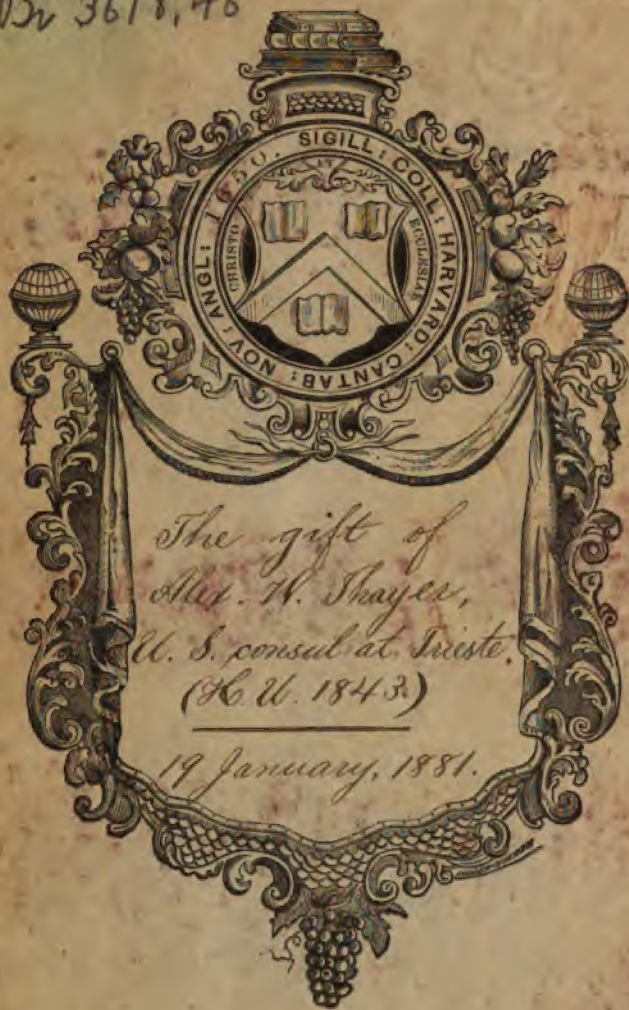 3618,40
SIGILL: COLL: HARVARD: CANTAB: NOV: ANGL: 1650.
CHRISTO
ECCLESIAE
The gift of
Alex. W. Thayer,
U. S. consul at Trieste.
(H. U. 1843.)
19 January, 1881.